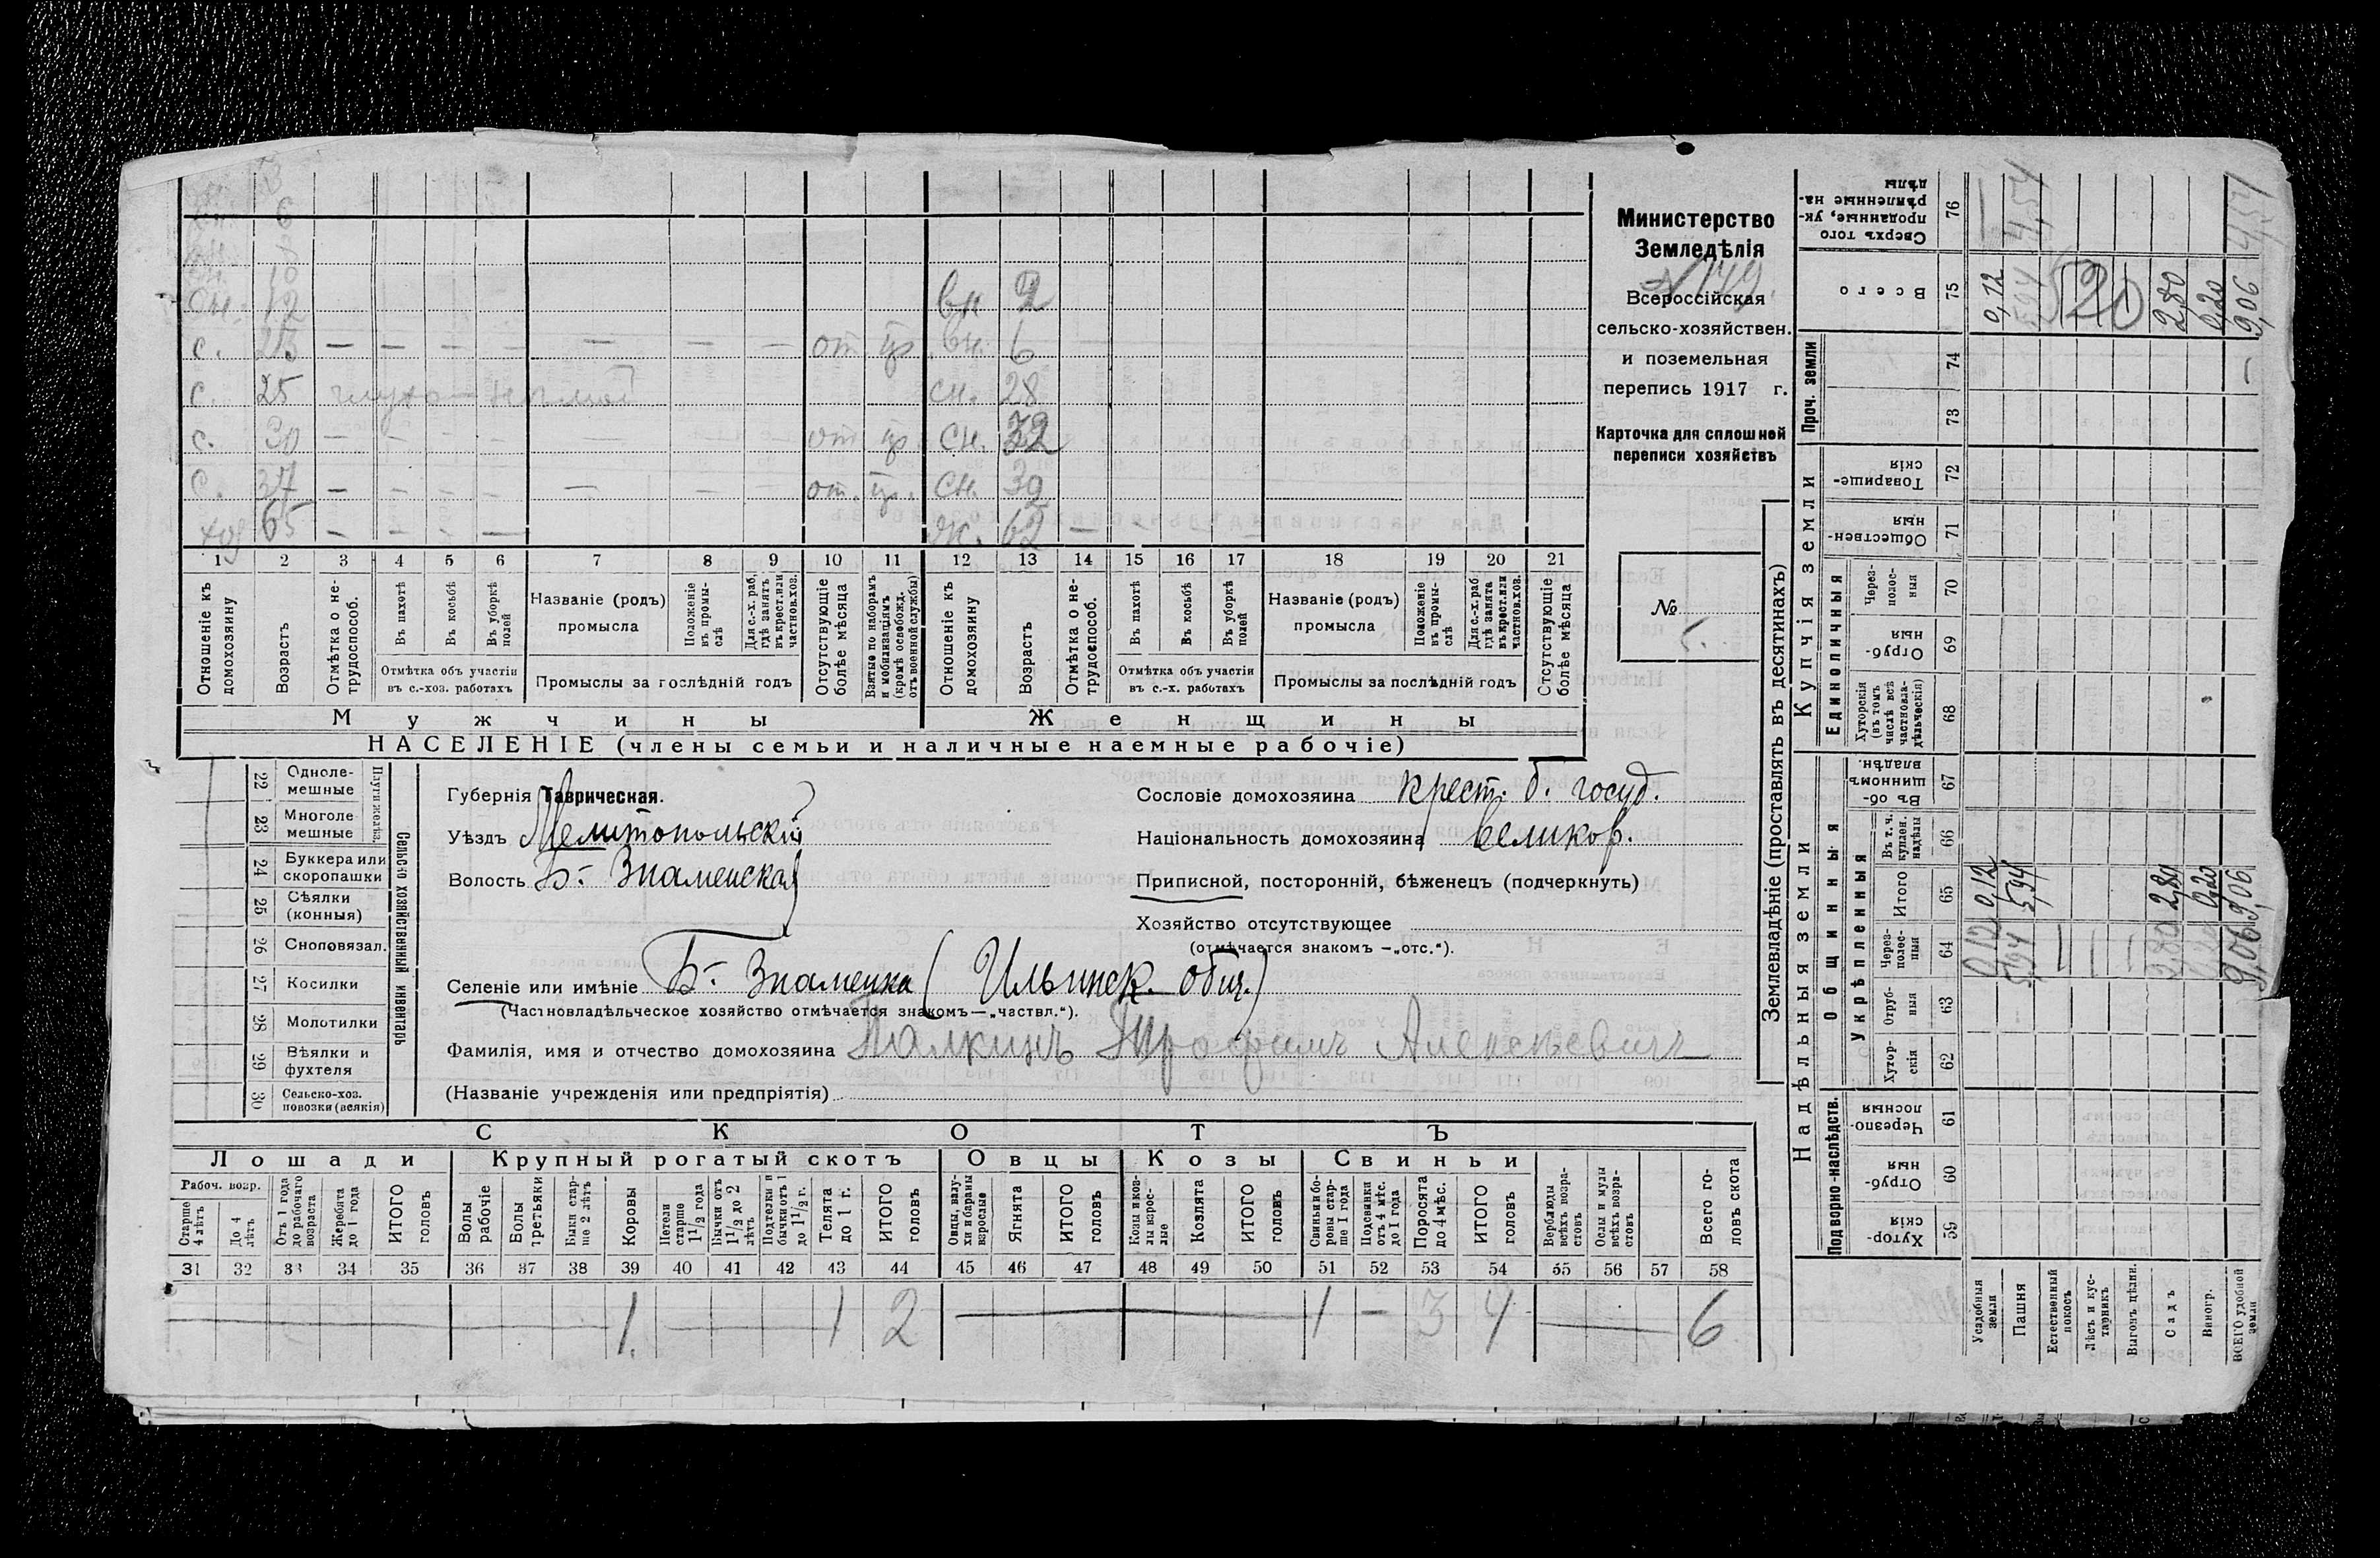 вн 2
вн. 12
с. 25 — — — — — — — от. вн. 6
с. 25 глухо-немой сн. 28
с. 30 — — — — — — — от. сн. 32
с. 37 — — — — — — — от. сн. 39
хоз 65 — — — — ж. 62 —
1 2 3 4 5 6 7 8 9 10 11 12 13 14 15 16 17 18 19 20 21
Отношеніе къ домохозяину
Возрастъ
Отмѣтка о не-трудоспособ.
Въ пахотѣ
Въ косьбѣ
Въ уборкѣ полей
Отмѣтка объ участіи
въ с.-хоз. работахъ
Названіе (родъ)
промысла
Положеніе въ промы-слѣ
Для с.-х. раб. гдѣ занятъ въ крест. или частнов. хоз.
Промыслы за послѣдній годъ
Отсутствующіе болѣе мѣсяца
Взятые по наборамъ и мобилизаціямъ (кромѣ освобожд. отъ военной службы)
Отношеніе къ домохозяину
Возрастъ
Отмѣтка о не-трудоспособ.
Въ пахотѣ
Въ косьбѣ
Въ уборкѣ полей
Отмѣтка объ участіи
въ с.-х. работахъ
Названіе (родъ)
промысла
Положеніе въ промы-слѣ
Для с.-х. раб. гдѣ занята въ крест. или частнов. хоз.
Промыслы за послѣдній годъ
Отсутствующіе болѣе мѣсяца
Мужчины
Женщины
НАСЕЛЕНІЕ (члены семьи и наличные наемные рабочіе)
Министерство
Земледѣлія
Всероссійская
сельско-хозяйствен.
и поземельная
перепись 1917 г.
Карточка для сплошной
переписи хозяйствъ
№
Сельско хозяйственный инвентарь
Плуги желѣз.
22 Одноле-мешные
23 Многоле мешные
24 Буккера или скоропашки
25 Сѣялки (конныя)
26 Сноповязал.
27 Косилки
28 Молотилки
29 Вѣялки и фухтеля
30 Сельско-хоз. повозки (всякія)
Губернія Таврическая.
Уѣздъ Мелитопольскій
Волость Б.- Знаменская
Сословіе домохозяина крест. б. госуд.
Національность домохозяина великор.
Приписной, посторонній, бѣженецъ (подчеркнуть)
Хозяйство отсутствующее
(отмѣчается знакомъ —„отс.“).
Селеніе или имѣніе Б.- Знаменка (Ильинск. общ.)
(Частновладѣльческое хозяйство отмѣчается знакомъ—„частвл.“).
Фамилія, имя и отчество домохозяина Палкинъ Трофимъ Алексѣевичъ
(Названіе учрежденія или предпріятія)
СКОТЪ
Лошади
Крупный рогатый скотъ
Овцы
Козы
Свиньи
Рабоч. возр.
Старше 4 лѣтъ
До 4 лѣтъ
Отъ 1 года до рабочаго возраста
Жеребята до 1 года
ИТОГО головъ
Волы рабочіе
Волы третьяки
Быки стар-ше 2 лѣтъ
Коровы
Нетели старше 1 1/2 года
Бычки отъ 1 1/2 до 2 лѣтъ
Подтелки и бычки отъ 1 до 1 1/2 г.
Телята до 1 г.
ИТОГО головъ
Овцы, валу-хи и бараны взрослые
Ягнята
ИТОГО головъ
Козы и коз-лы взрос-лые
Козлята
ИТОГО головъ
Свиньи и бо-ровы стар-ше 1 года
Подсвинки отъ 4 мѣс. до 1 года
Поросята до 4 мѣс.
ИТОГО головъ
Верблюды всѣхъ возра-стовъ
Ослы и мулы всѣхъ возра-стовъ
Всего го-ловъ скота
31 32 33 34 35 36 37 38 39 40 41 42 43 44 45 46 47 48 49 50 51 52 53 54 55 56 57 58
1 1 2 1 — 3 4 6
Землевладѣніе (проставлять въ десятинахъ)
Надѣльныя земли
Купчія земли
Проч. земли
Подворно-наслѣдств.
Общинныя
Укрѣпленныя
Единоличныя
59 Хутор-скія
60 Отруб-ныя
61 Черезпо-лосныя
62 Хутор-скія
63 Отруб-ныя
64 Черезполос-ныя
65 Итого
66 Въ т. ч. куплен. надѣлы
67 Въ об-щинномъ владѣн.
68 Хуторскія (въ томъ числѣ всѣ частновла-дѣльческія)
69 Отруб-ныя
70 Через-полос-ныя
71 Обществен-ныя
72 Товарище-скія
73
74
75 Всего
76 Сверхъ того проданные, ук-рѣпленные на-дѣлы
Усадебныя земли 0,12 0,12 0,12
Пашня 5,94 5,94 5,94 4,54
Естественный покосъ
Лѣсъ и кус-тарникъ
Выгонъ цѣлин.
Садъ 2,80 2,80 2,80
Виногр. 0,20 0,20 0,20
ВСЕГО удобной земли 9,06 9,06 9,06